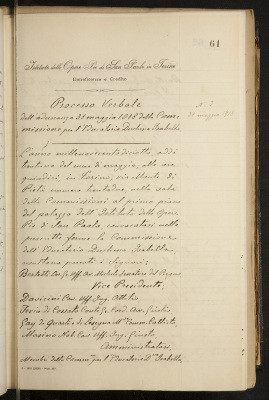 61
Istituto delle Opere Pie di San Paolo in Torino
Beneficenza e Credito
Processo Verbale
dell'adunanza 31 maggio 1918 della Com-
missione per l'Educatorio Duchessa Isabella
N. 3
31 maggio 1918
L'anno millenovecentodiciotto, addì
trentuno del mese di maggio, alle ore
quindici, in Torino, via Monte di
Pietà numero trentadue, nella sala
delle Commissioni al primo piano
del palazzo dell'Istituto delle Opere
Pie di San Paolo, convocatasi nelle
prescritte forme la Commissione
dell'Educatorio Duchessa Isabella,
risultano presenti i Signori:
Uff. Avv. Michele Senatore del Regno,
Vice Presidente,
Cav. Uff. Ing. Attilio
Feria di Cossato Conte Cav. Giulio
Gay di Quarti
Cav. Uff. Ing.
Amministratori,
Membri della Comm. per l'Educatorio D. Isabella,